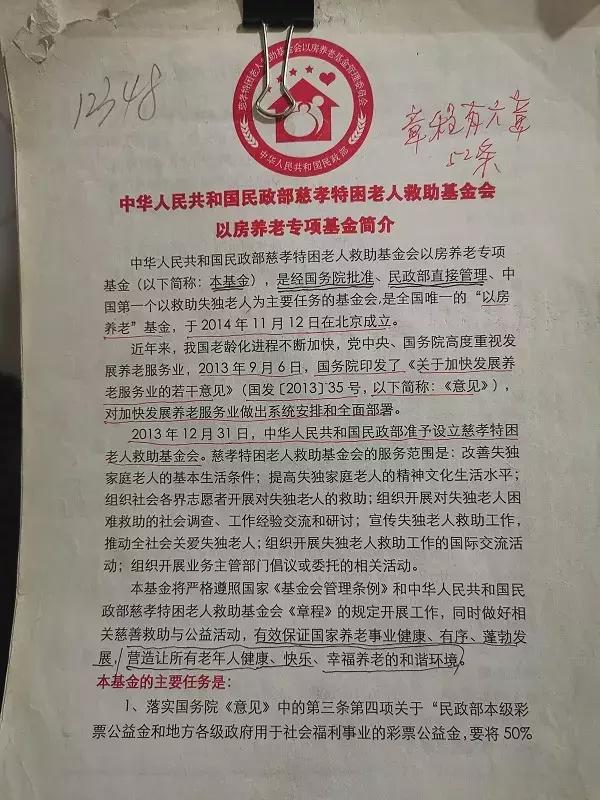 慈孝特困老人救助基金会以房养老基金管理委员会
中华人民共和国民政部
12348
章程有六章
52条
中华人民共和国民政部慈孝特困老人救助基金会
以房养老专项基金简介
中华人民共和国民政部慈孝特困老人救助基金会以房养老专项
基金（以下简称：本基金），是经国务院批准、民政部直接管理、中
国第一个以救助失独老人为主要任务的基金会，是全国唯一的“以房
养老”基金，于 2014 年 11 月 12 日在北京成立。
近年来，我国老龄化进程不断加快，党中央、国务院高度重视发
展养老服务业，2013 年 9 月 6 日，国务院印发了《关于加快发展养
老服务业的若干意见》（国发［2013］35 号，以下简称：《意见》），
对加快发展养老服务业做出系统安排和全面部署。
2013 年 12 月 31 日，中华人民共和国民政部准予设立慈孝特困
老人救助基金会。慈孝特困老人救助基金会的服务范围是：改善失独
家庭老人的基本生活条件；提高失独家庭老人的精神文化生活水平；
组织社会各界志愿者开展对失独老人的救助；组织开展对失独老人困
难救助的社会调查、工作经验交流和研讨；宣传失独老人救助工作，
推动全社会关爱失独老人；组织开展失独老人救助工作的国际交流活
动；组织开展业务主管部门倡议或委托的相关活动。
本基金将严格遵照国家《基金会管理条例》和中华人民共和国民
政部慈孝特困老人救助基金会《章程》的规定开展工作，同时做好相
关慈善救助与公益活动，有效保证国家养老事业健康、有序、蓬勃发
展，营造让所有老年人健康、快乐、幸福养老的和谐环境。
本基金的主要任务是：
1、落实国务院《意见》中的第三条第四项关于“民政部本级彩
票公益金和地方各级政府用于社会福利事业的彩票公益金，要将 50%